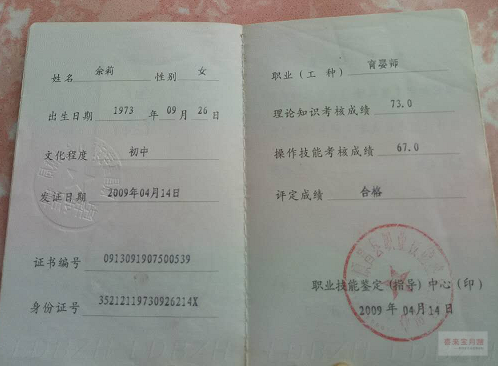 姓名 余莉 性别 女
出生日期 1973 年 09 月 26 日
文化程度 初中
发证日期 2009年04月14日
证书编号 0913091907500539
身份证号 35212119730926214X
职业（工 种） 育婴师
理论知识考核成绩 73.0
操作技能考核成绩 67.0
评定成绩 合格
职业技能鉴定（指导）中心（印）
2009 年 04月 14 日